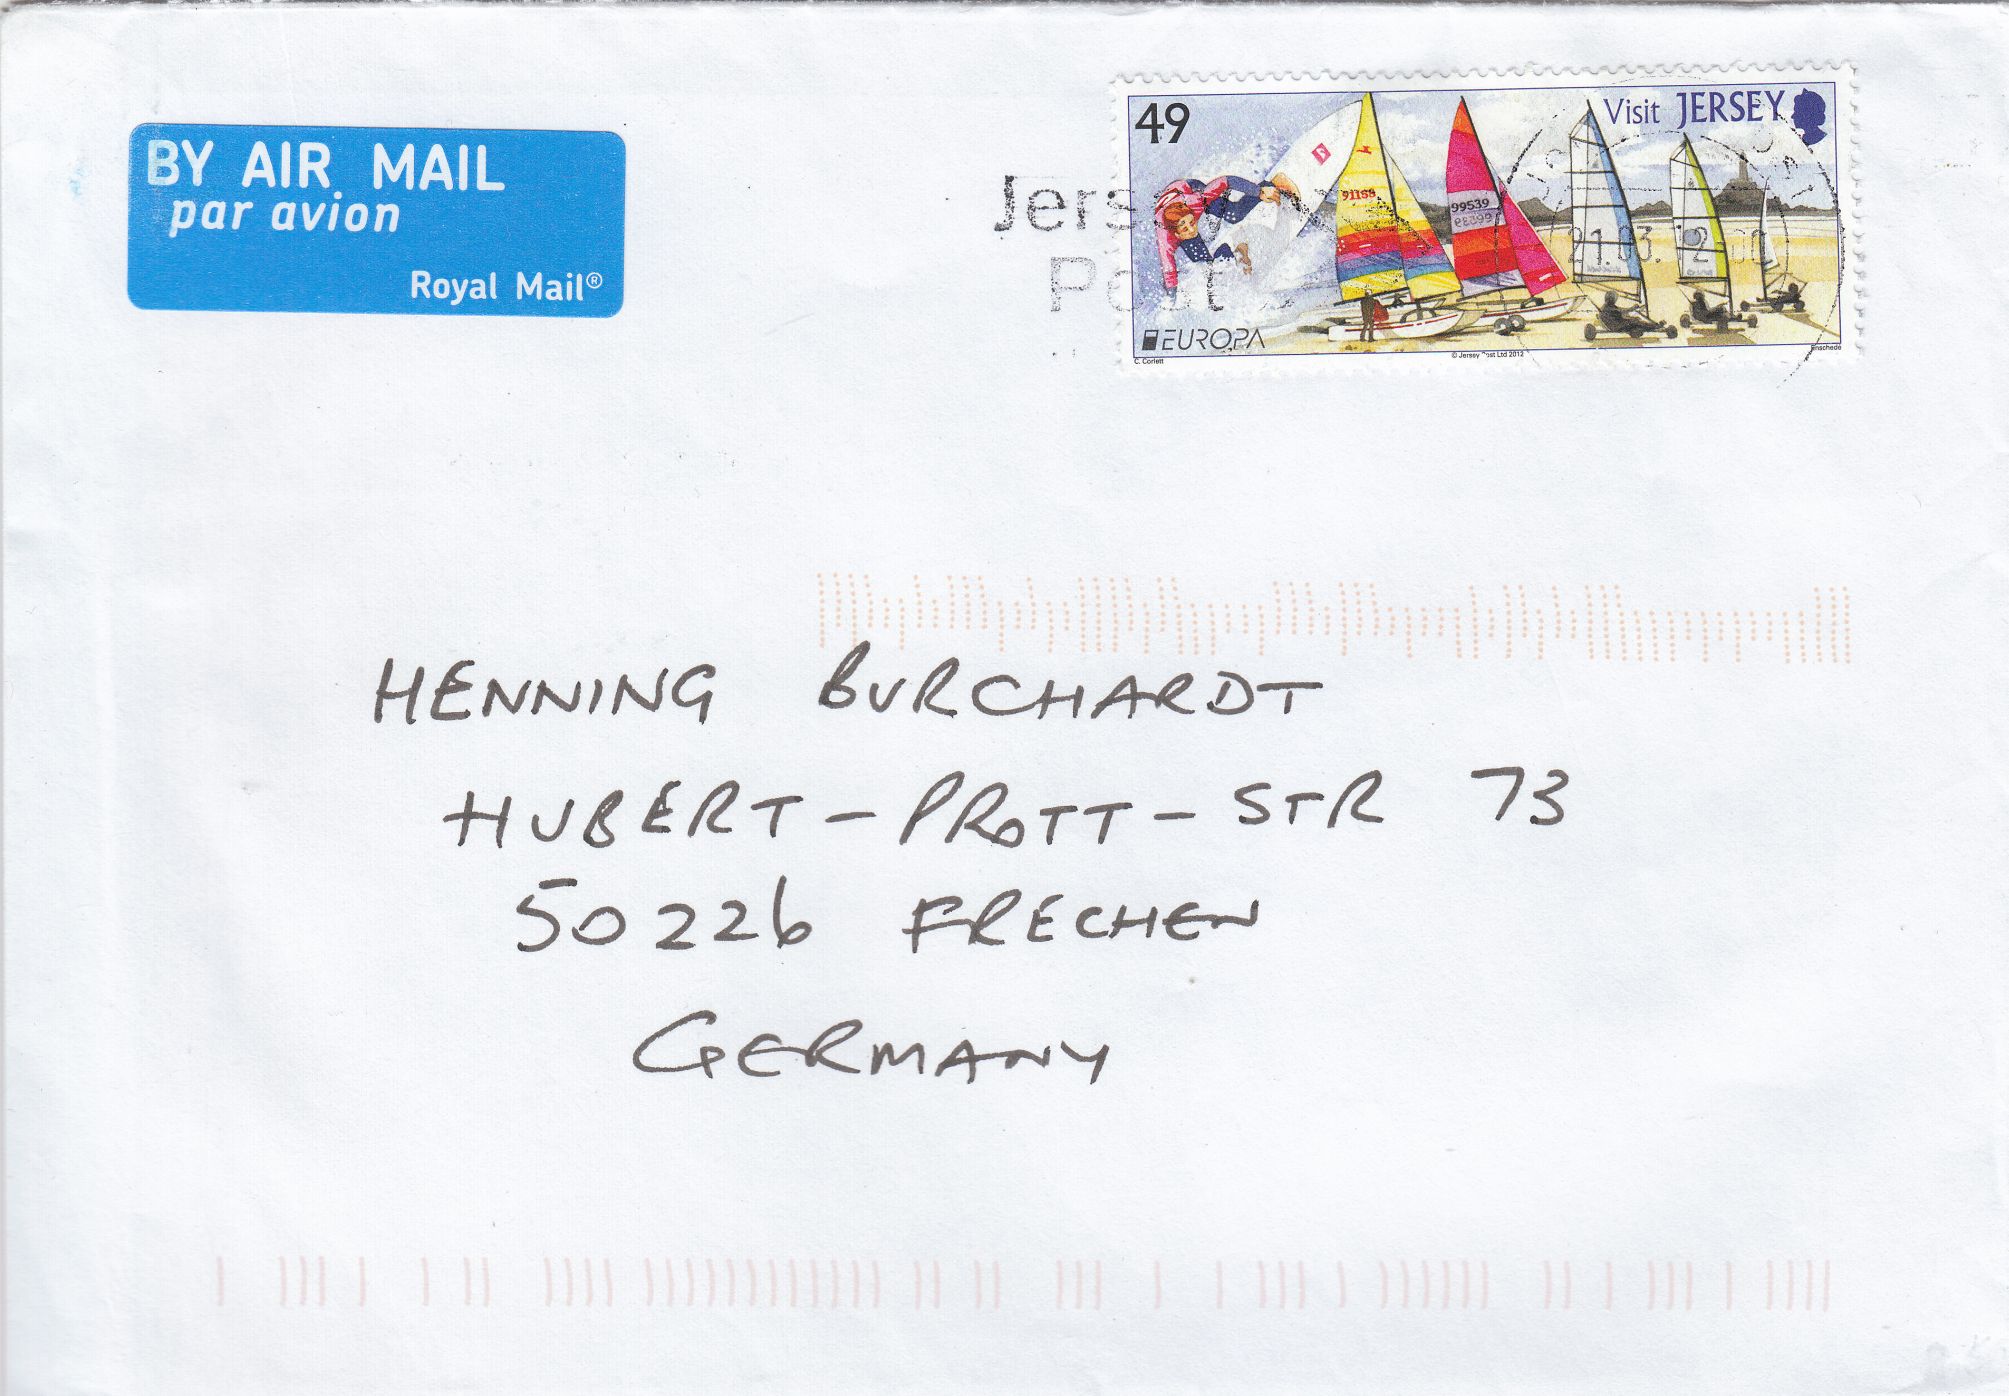 BY AIR MAIL
par avion
Royal Mail®
49
Visit JERSEY
91158
99539
EUROPA
C. Corlett
© Jersey Post Ltd 2012
Enschede
Jersey
Post
21.03. 12-00
HENNING BURCHARDT
HUBERT-PROTT-STR 73
50226 FRECHEN
GERMANY